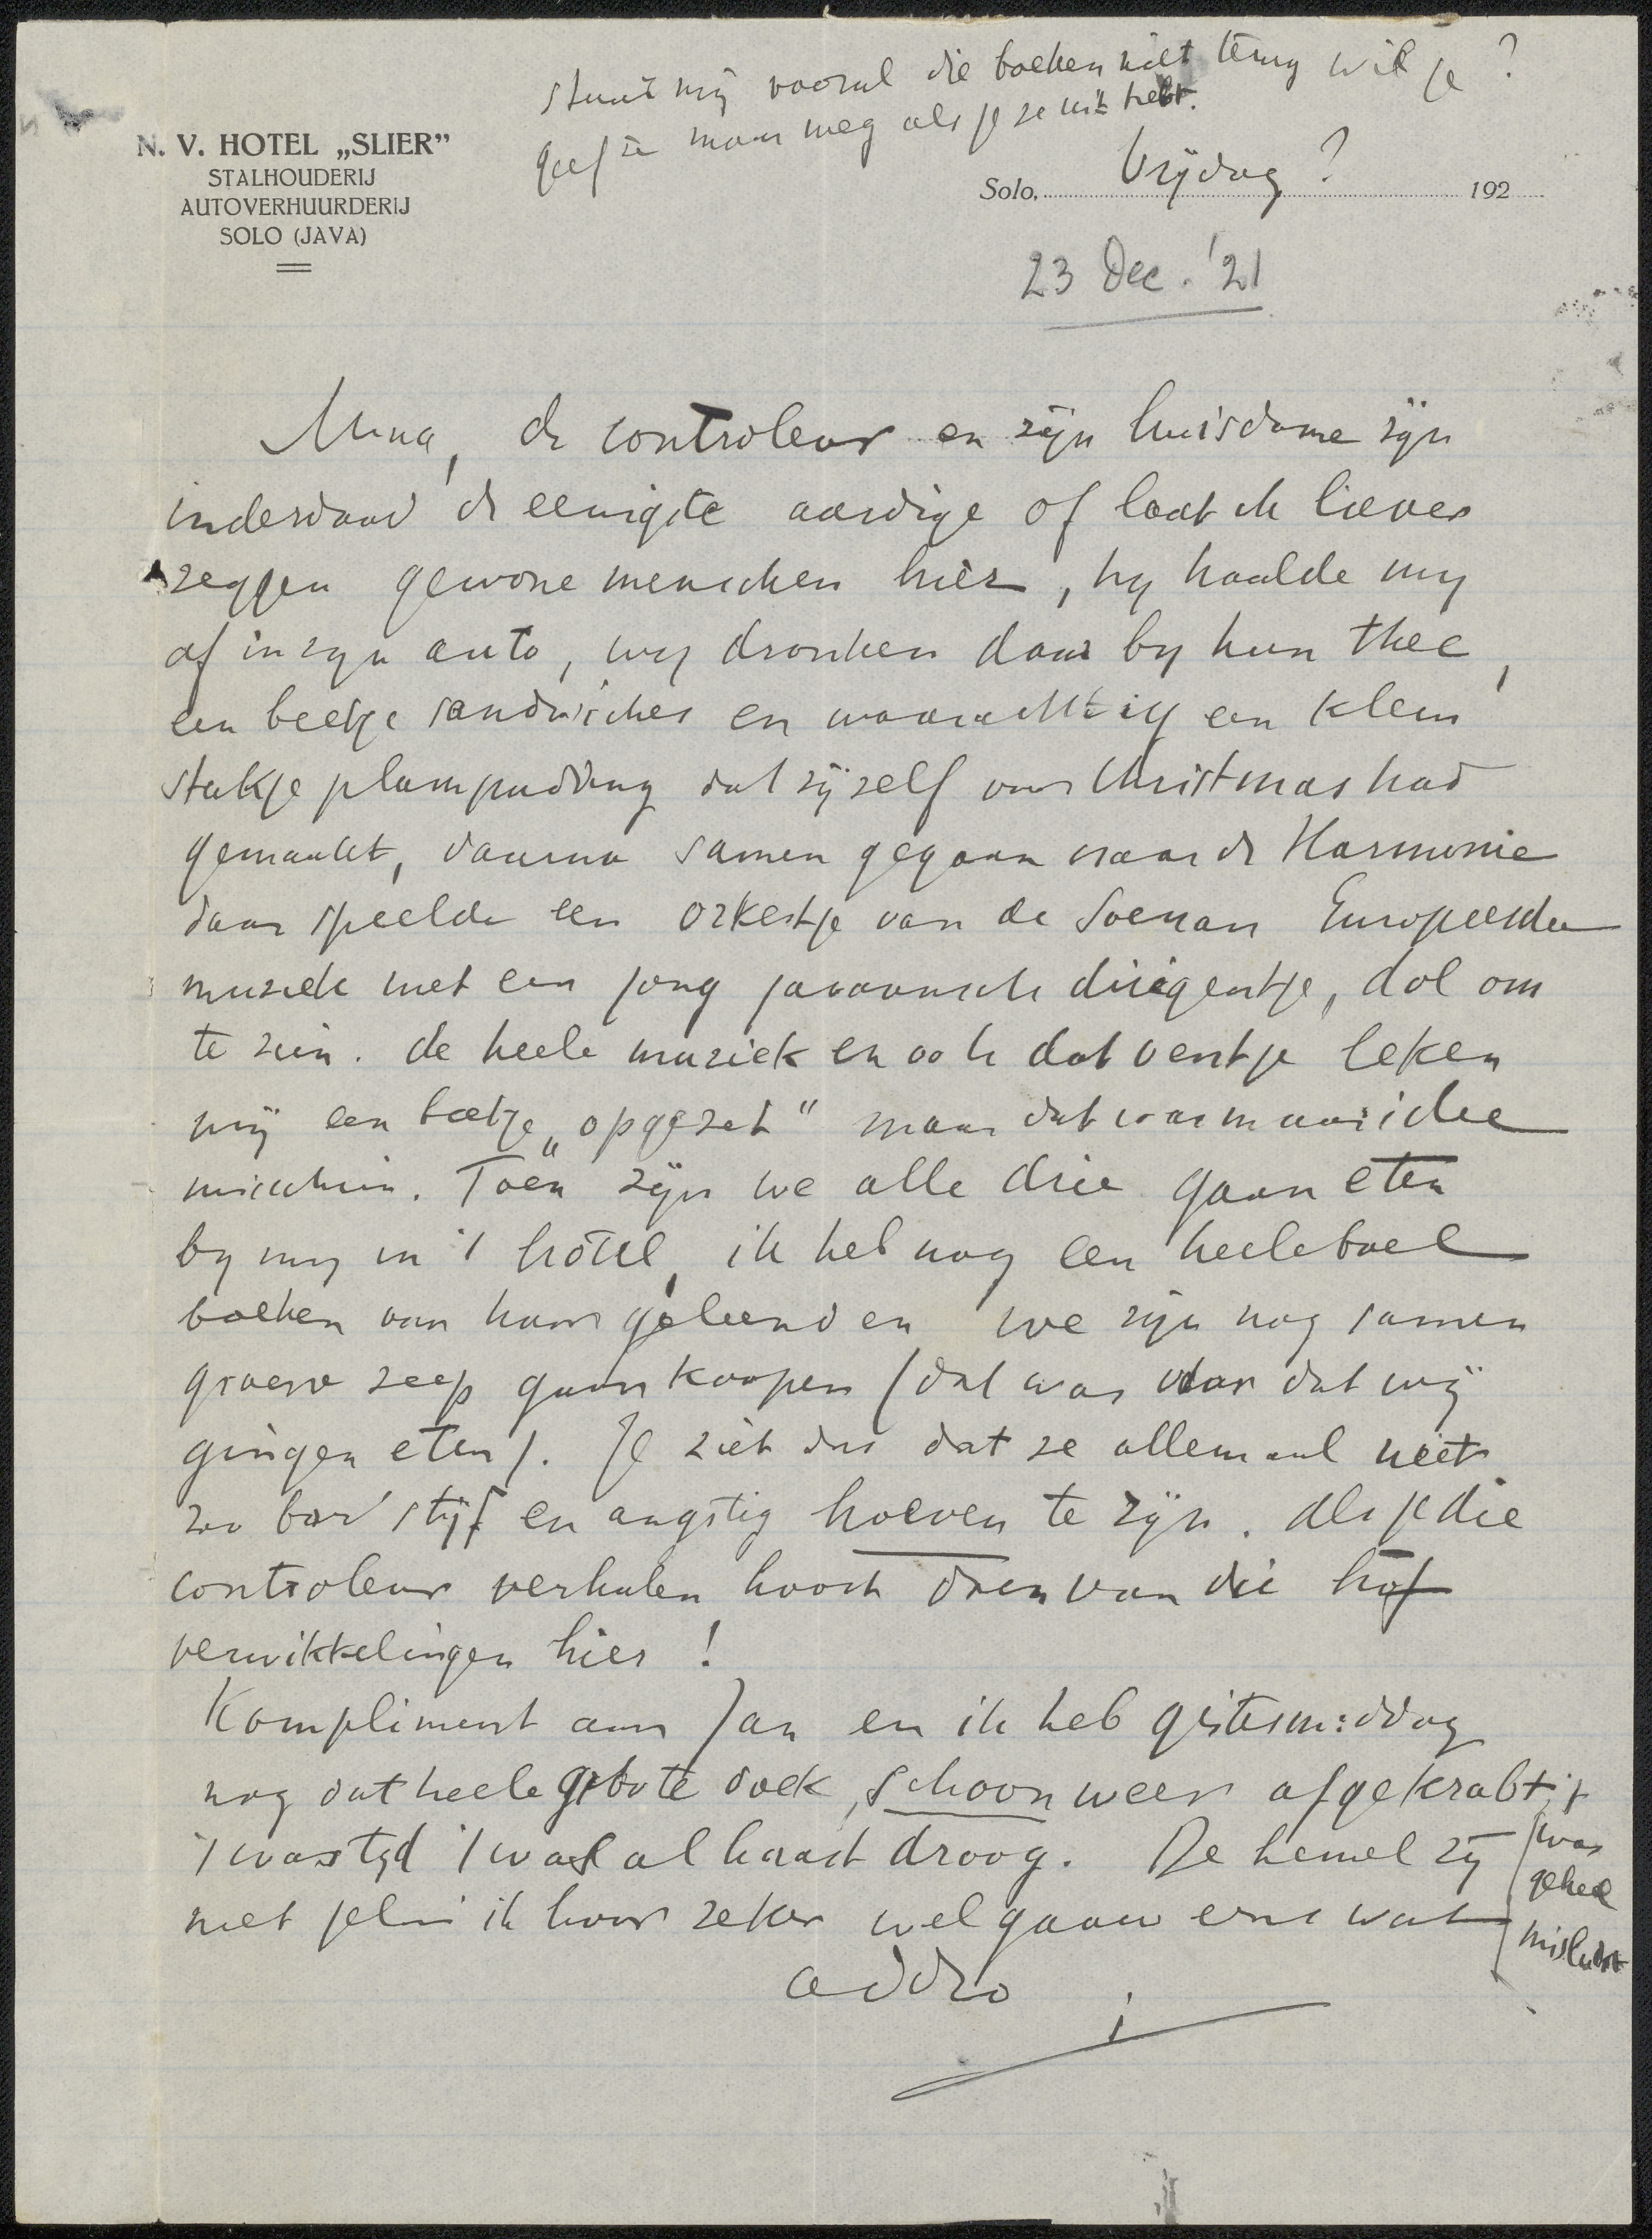 stuur mij vooral die boeken niet terug wil je ?
geef ze maar weg als je ze uit hebt.
N. V. HOTEL „SLIER”
STALHOUDERIJ
AUTOVERHUURDERIJ
SOLO (JAVA)
Solo, Vrijdag ? 192
23 Dec. '21
de controleur en zijn huisdame zijn
inderdaad de eenigste aardige of laat ik liever
zeggen gewone menschen hier, hy haalde my
af in zyn auto, wy dronken daar by hun thee,
een beetje sandwiches en waarachtig een klein
stukje plumpudding dat zij zelf voor Christmas had
gemaakt, daarna samen gegaan naar de Harmonie
daar speelde een orkestje van de Soenan Europeesche
muziek met een jong javaansch dirigentje, dol om
te zien. de heele muziek en ook dat ventje leken
mij een beetje „opgezet“ maar dat was maar idee
misschien. Toen zijn we alle drie gaan eten
by my in 't hôtel, ik heb nog een heeleboel
boeken van haar geleend en we zijn nog samen
groene zeep gaan koopen (dat was voor dat wij
gingen eten). Je ziet dus dat ze allemaal niet
zoo bar stijf en angstig hoeven te zijn. Als je die
controleur verhalen hoort doen van die hof
verwikkelingen hier !
Kompliment aan Jan en ik heb gistermiddag
nog dat heele groote doek, schoon weer afgekrabt,
't was tyd 't was al haast droog. De hemel zij
met jelui ik hoor zeker wel gauw eens wat
't was
geheel
mislukt
addio